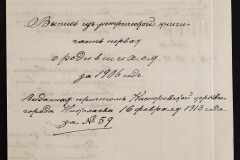 Выпись изъ метрической книги
часть первая
о родившихся
за 1906 годъ
Выданная причтомъ церкви
города 16 февраля 1913 года
за № 59